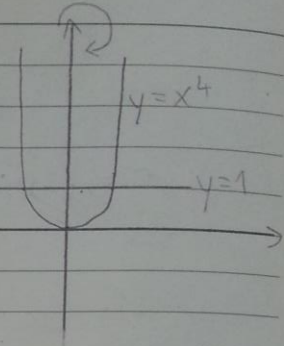 y=x⁴
y=1